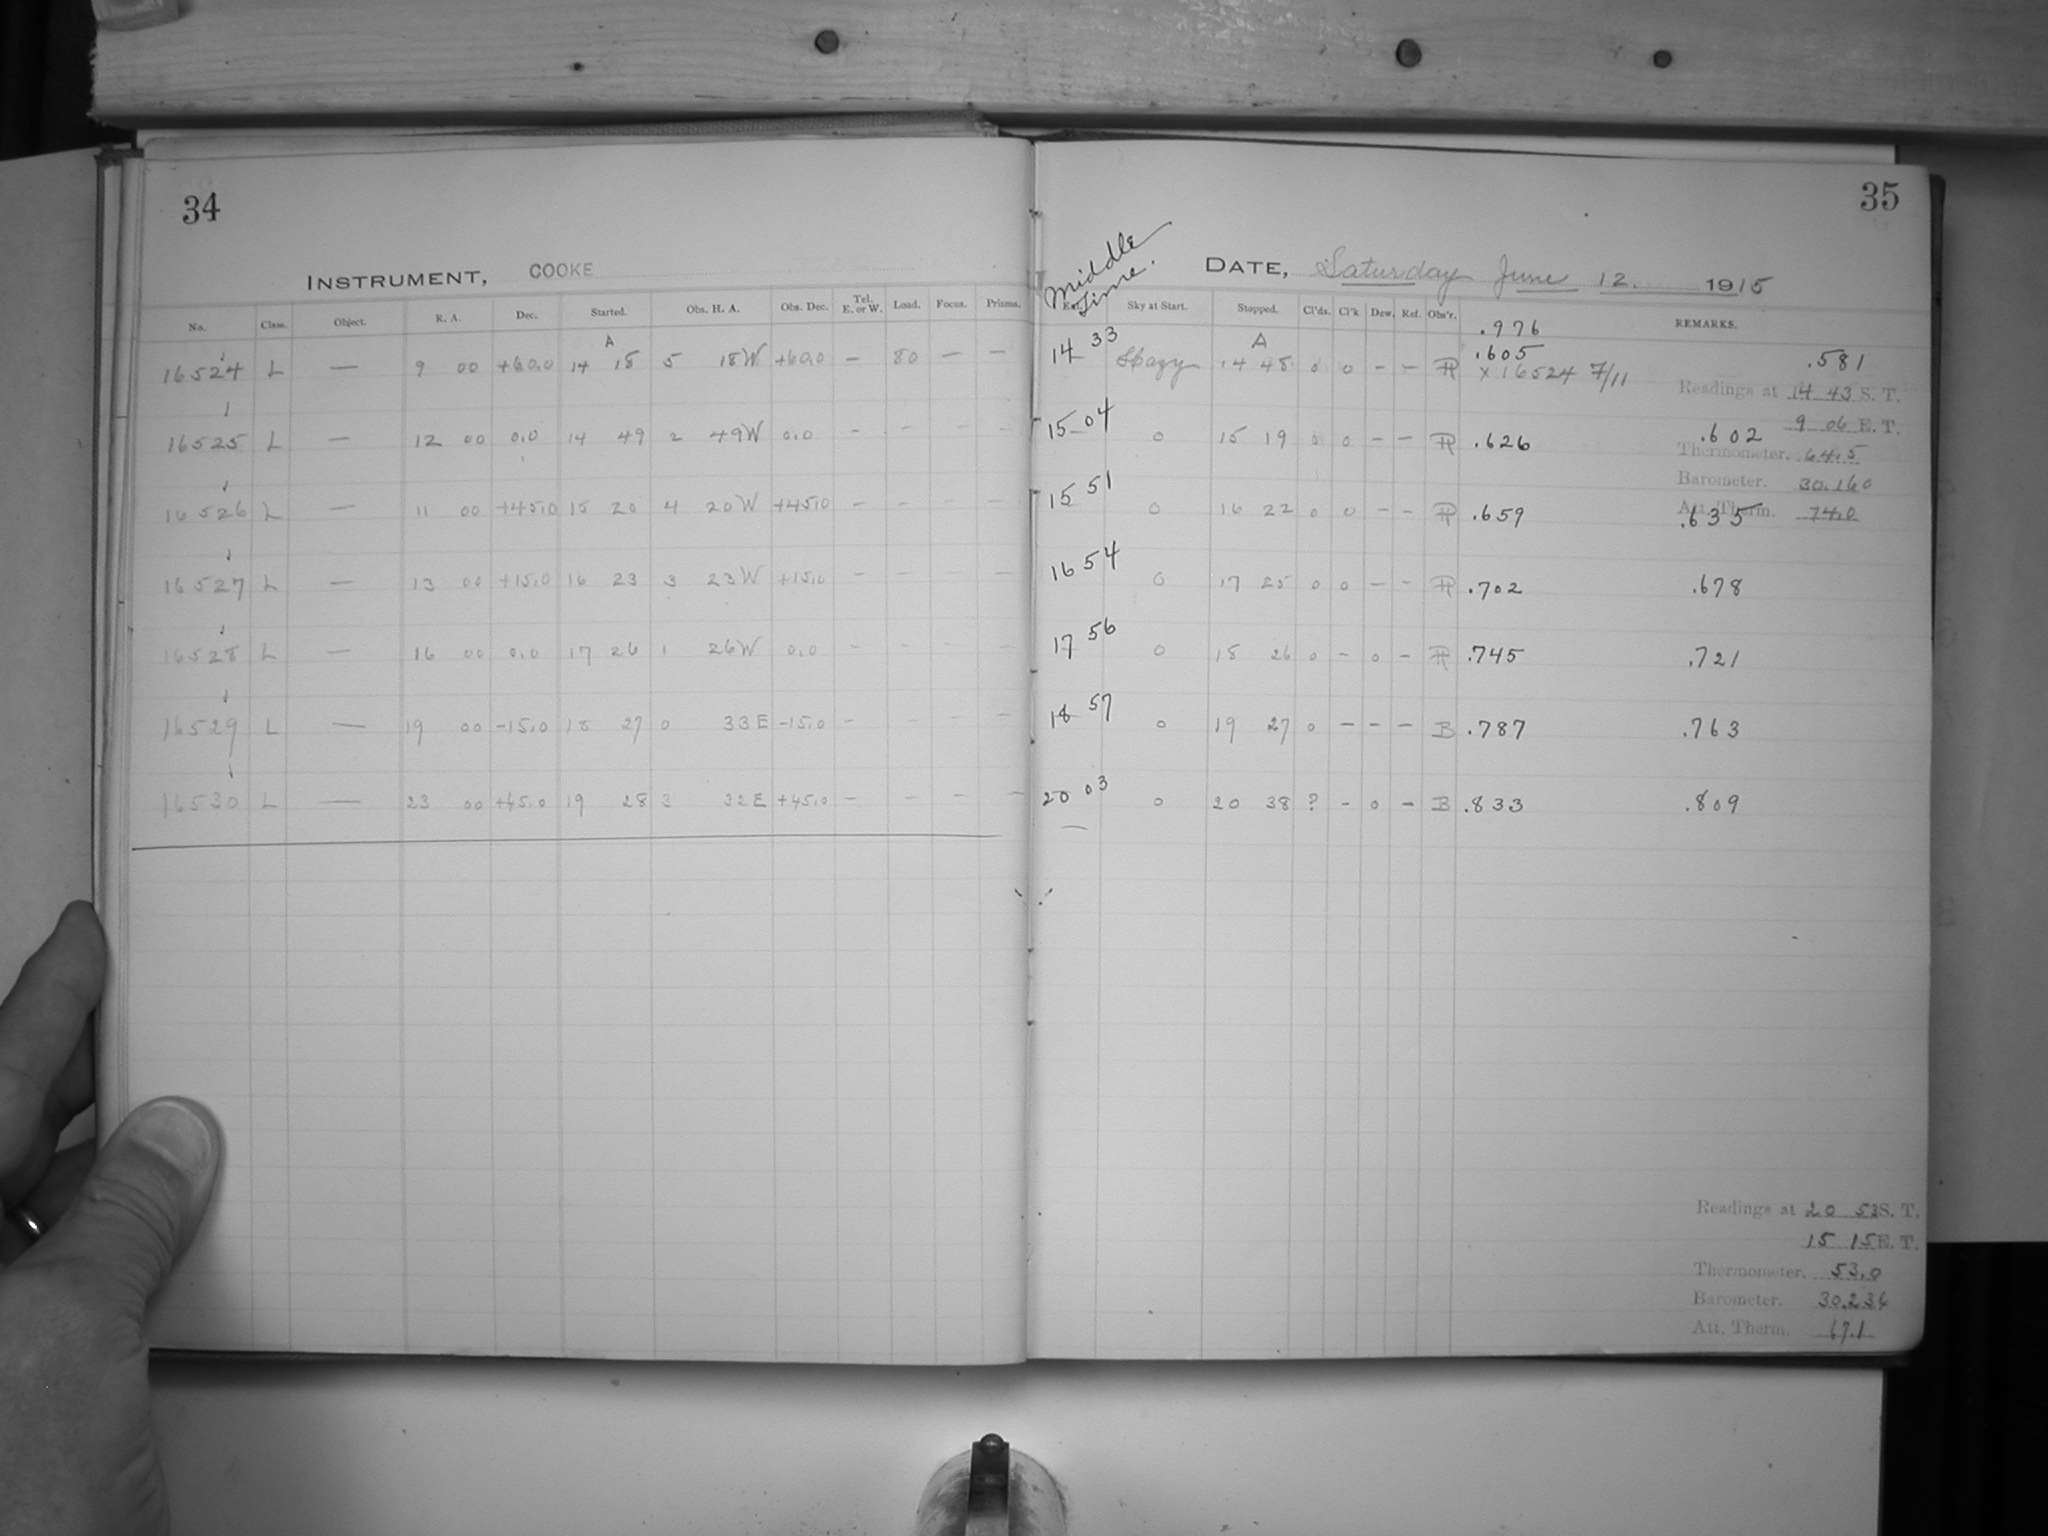 34
35
INSTRUMENT, COOKE
Middle Time.
DATE, Saturday June 12. 1915
No. Class. Object. R. A. Dec. Started. Obs. H. A. Obs. Dec. Tel. E. or W. Load. Focus. Prisms. Sky at Start. Stopped. Cl'ds. Cl'k Dew. Ref. Obs'r. REMARKS.
.976
A A .605
16524 L — 9 00 +60.0 14 18 5 18W +60.0 — 80 — — 14 33 Hazy 14 48 0 0 — — .581
x 16524 7/11
Readings at 14 43 S. T.
9 06 E. T.
16525 L — 12 00 0.0 14 49 2 49W 0.0 — — — — 15 04 0 15 19 0 0 — — .626 .602
Thermometer. 64.5
Barometer. 30.160
16526 L — 11 00 +45.0 15 20 4 20W +45.0 — — — — 15 51 0 16 22 0 0 — — .659 .635
Att. Therm. 74.0
16527 L — 13 00 +15.0 16 23 3 23W +15.0 — — — — 16 54 0 17 25 0 0 — — .702 .678
16528 L — 16 00 0.0 17 26 1 26W 0.0 — — — — 17 56 0 18 26 0 — 0 — .745 .721
16529 L — 19 00 -15.0 18 27 0 33E -15.0 — — — — 18 57 0 19 27 0 — — — B .787 .763
16530 L — 23 00 +45.0 19 28 3 32E +45.0 — — — — 20 03 0 20 38 ? — 0 — B .833 .809
Readings at 20 53 S. T.
15 15 E. T.
Thermometer. 53.0
Barometer. 30.236
Att. Therm. 67.1